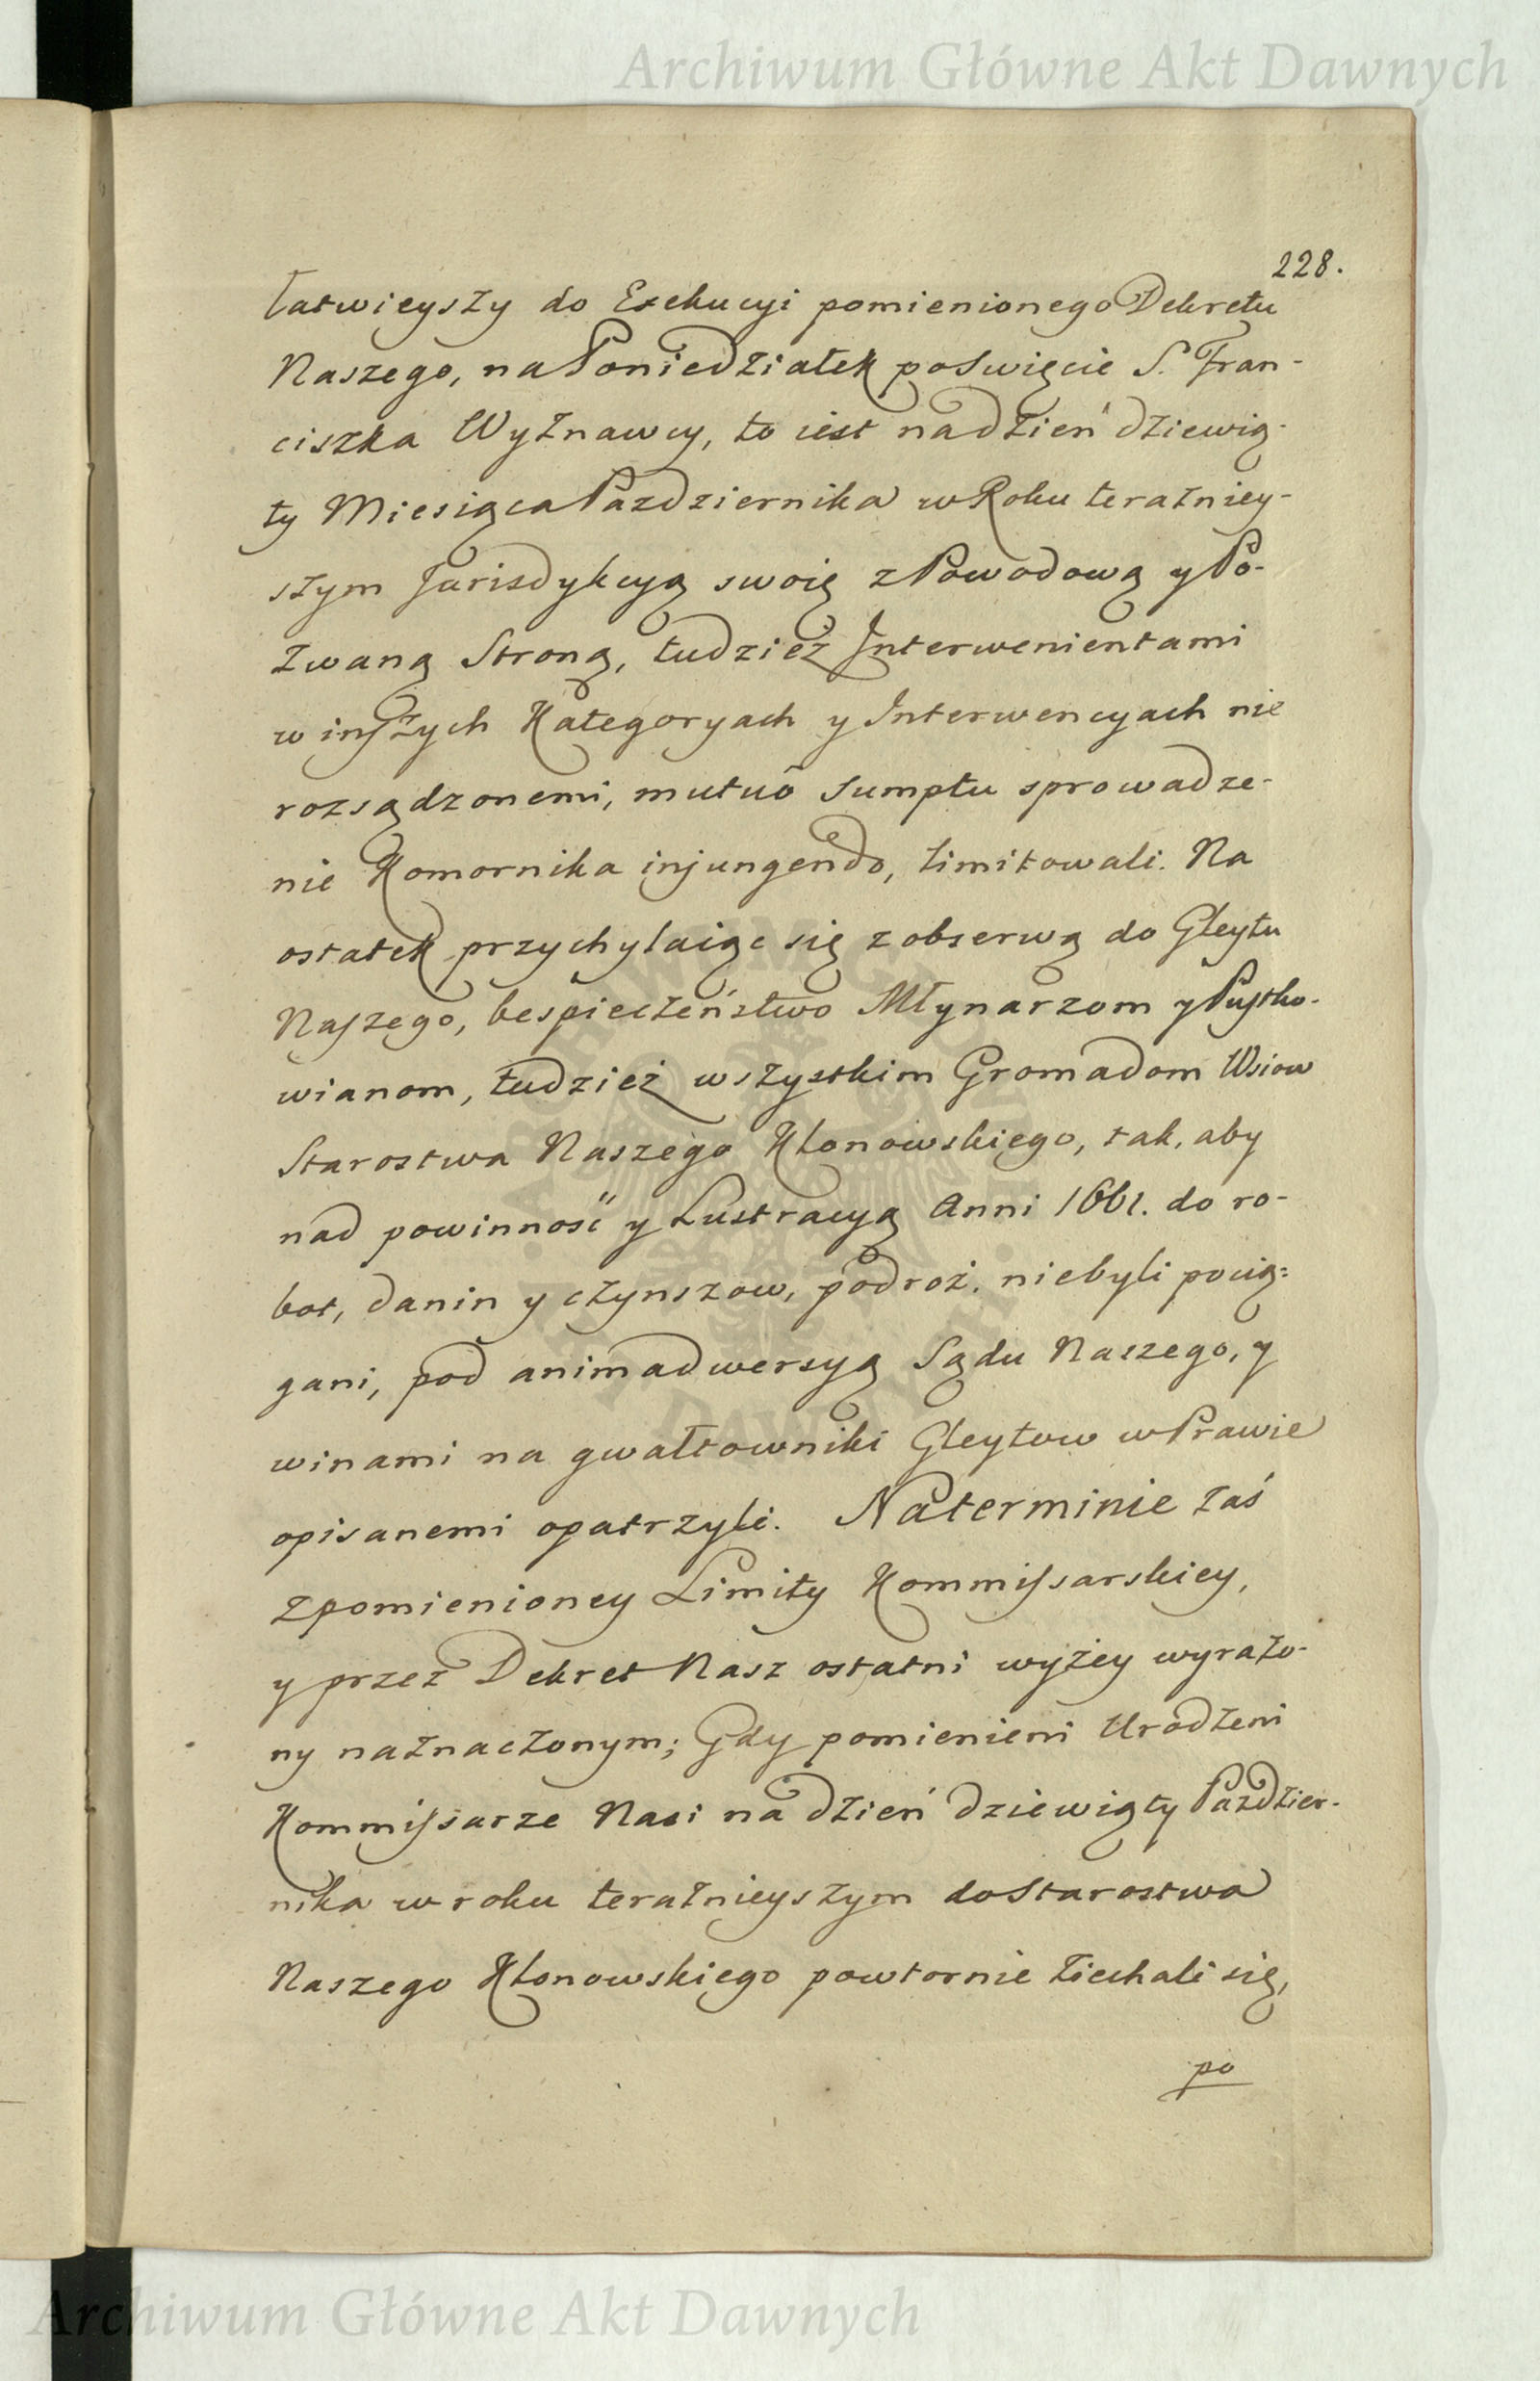 Archiwum Główne Akt Dawnych
228.
łatwieyszy do Exekucyi pomienionego Dekretu
Naszego, na Poniedziałek poSwięcie S. Fran-
ciszka Wyznawcy, to iest nadzień dziewią-
ty Miesiąca Pazdziernika w Roku teraźniey-
szym Jurisdykcyą swoię z Powodową y Po-
zwaną Stroną, tudzież Interwenientami
w inszych Kategoryach y Interwencyach nie
rozsądzonemi, mutuô sumptu sprowadze-
nie Komornika injungendo, limitowali. Na
ostatek przychylaiąc się z obserwą do Gleytu
Naszego, bespieczeństwo Młynarzom y Pustko-
wianom, tudzież wszystkim Gromadom Wsiow
Starostwa Naszego Kłonowskiego, tak, aby
nad powinność y Lustracyą Anni 1661. do ro-
bot, danin y czynszow, podroż, niebyli pocią=
gani, pod animadwersyą Sądu Naszego, y
winami na gwałtowniki Gleytow w Prawie
opisanemi opatrzyli. Naterminie zaś
z pomienioney Limity Kommissarskiey,
y przez Dekret Nasz ostatni wyżey wyrażo-
ny naznaczonym; Gdy pomienieni Urodzeni
Kommissarze Nasi na dzień dziewiąty Pazdzier-
nika w roku teraźnieyszym do Starostwa
Naszego Kłonowskiego powtornie ziechali się,
po
Archiwum Główne Akt Dawnych